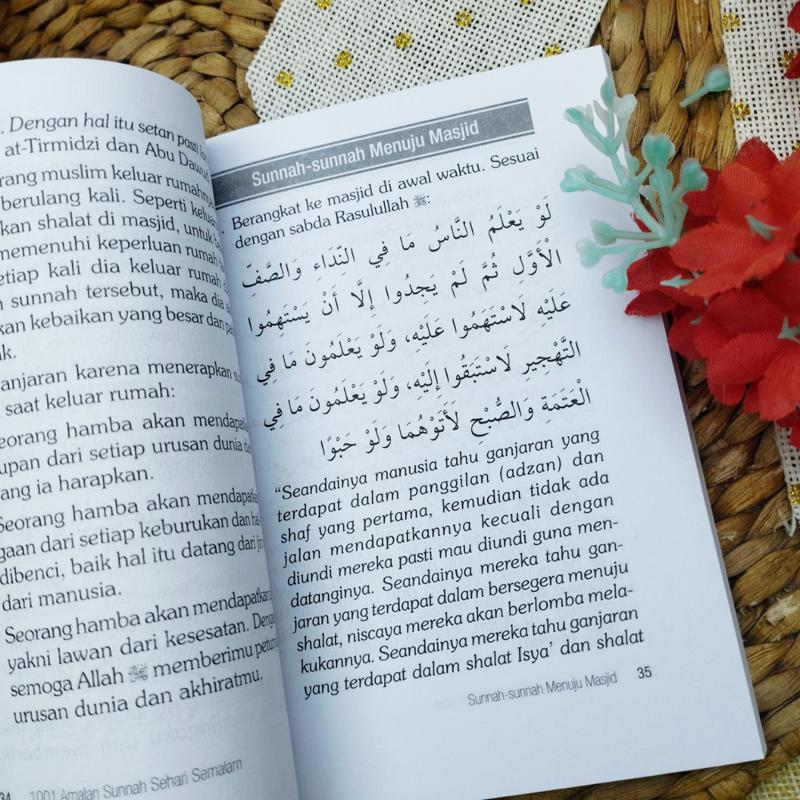 . Dengan hal itu setan pasti
at-Tirmidzi dan Abu Dawud
rang muslim keluar rumahnya
berulang kali. Seperti
kan shalat di masjid, untuk
memenuhi keperluan rumah
etiap kali dia keluar rumah
n sunnah tersebut, maka dia
kan kebaikan yang besar dan
k.
anjaran karena menerapkan
saat keluar rumah:
eorang hamba akan
upan dari setiap urusan dunia
ang ia harapkan.
Seorang hamba akan
gaan dari setiap keburukan dan
dibenci, baik hal itu datang dari
dari manusia.
Seorang hamba akan mendapatkan
yakni lawan dari kesesatan.
semoga Allah ﷻ memberimu
urusan dunia dan akhiratmu.
34 1001 Amalan Sunnah Sehari Semalam
Sunnah-sunnah Menuju Masjid
Berangkat ke masjid di awal waktu. Sesuai
dengan sabda Rasulullah ﷺ:
لَوْ يَعْلَمُ النَّاسُ مَا فِي النِّدَاءِ وَالصَّفِّ
الْأَوَّلِ ثُمَّ لَمْ يَجِدُوا إِلَّا أَنْ يَسْتَهِمُوا
عَلَيْهِ لَاسْتَهَمُوا عَلَيْهِ، وَلَوْ يَعْلَمُونَ مَا فِي
التَّهْجِيرِ لَاسْتَبَقُوا إِلَيْهِ، وَلَوْ يَعْلَمُونَ مَا فِي
الْعَتَمَةِ وَالصُّبْحِ لَأَتَوْهُمَا وَلَوْ حَبْوًا
“Seandainya manusia tahu ganjaran yang
terdapat dalam panggilan (adzan) dan
shaf yang pertama, kemudian tidak ada
jalan mendapatkannya kecuali dengan
diundi mereka pasti mau diundi guna men-
datanginya. Seandainya mereka tahu gan-
jaran yang terdapat dalam bersegera menuju
shalat, niscaya mereka akan berlomba mela-
kukannya. Seandainya mereka tahu ganjaran
yang terdapat dalam shalat Isya’ dan shalat
Sunnah-sunnah Menuju Masjid 35